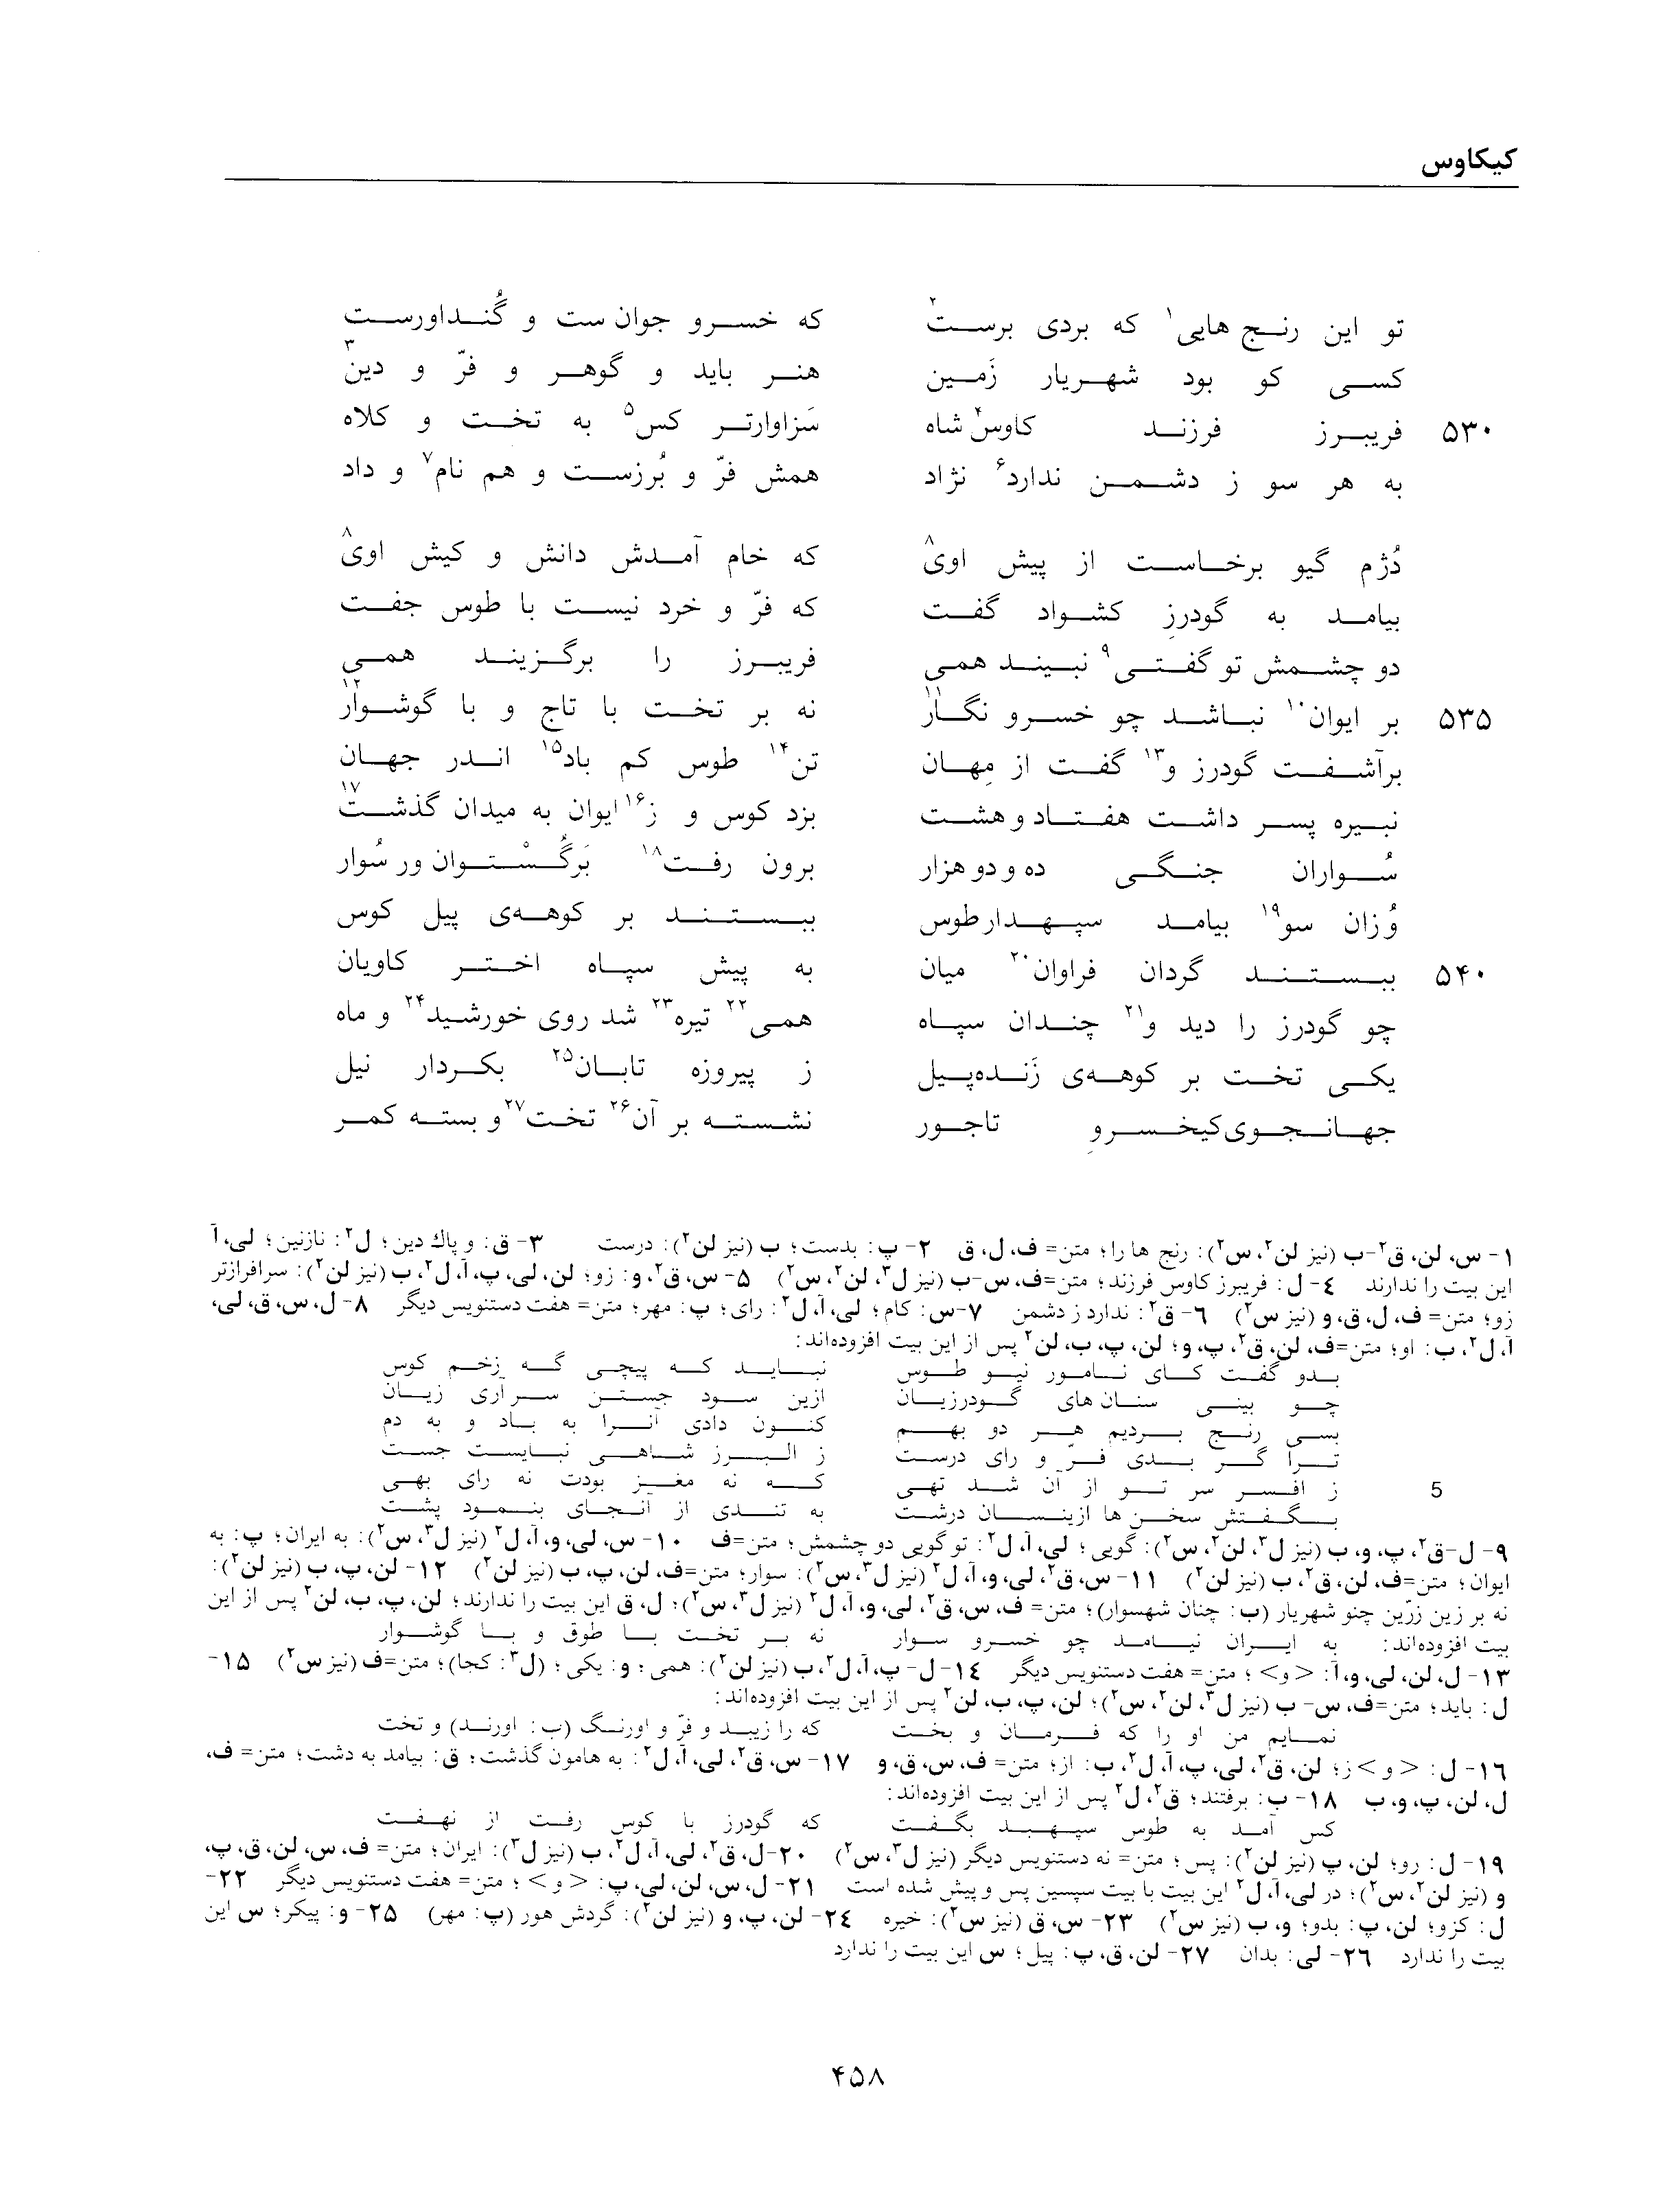 کیکاوس
تو این رنج‌هایی۱ که بردی برست۲ که خسرو جوان‌ست و گُنداورست
کسی کو بود شهریار زَمین هنر باید و گوهر و فرّ و دین۳
۵۳۰ فریبرز فرزند کاوس۴ شاه سَزاوارتر کس۵ به تخت و کلاه
به هر سو ز دشمن ندارد۶ نژاد همش فرّ و بُرزست و هم نام۷ و داد
دُژم گیو برخاست از پیش اوی۸ که خام آمدش دانش و کیش اوی۸
بیامد به گودرزِ کشواد گفت که فرّ و خرد نیست با طوس جفت
دو چشمش تو گفتی۹ نبیند همی فریبرز را برگزیند همی
۵۳۵ بر ایوان۱۰ نباشد چو خسرو نگار۱۱ نه بر تخت با تاج و با گوشوار۱۲
برآشفت گودرز و۱۳ گفت از مِهان تن۱۴ طوس کم باد۱۵ اندر جهان
نبیره پسر داشت هفتاد و هشت بزد کوس و ز۱۶ ایوان به میدان گذشت۱۷
سُواران جنگی ده و دو هزار برون رفت۱۸ بَرگُسْتوان ور سُوار
وُزان سو۱۹ بیامد سپهدار طوس ببستند بر کوهه‌ی پیل کوس
۵۴۰ ببستند گردان فراوان۲۰ میان به پیش سپاه اختر کاویان
چو گودرز را دید و۲۱ چندان سپاه همی۲۲ تیره۲۳ شد روی خورشید۲۴ و ماه
یکی تخت بر کوهه‌ی زَنده‌پیل ز پیروزه تابان۲۵ بکردار نیل
جهانجوی کیخسروِ تاجور نشسته بر آن۲۶ تخت۲۷ و بسته کمر
۱- س، لن، ق۲-ب (نیز لن۲، س۲): رنج‌ها را؛ متن= ف، ل، ق ۲- پ: بدست؛ ب (نیز لن۲): درست ۳- ق: و پاك دین؛ ل۲: نازنین؛ لی، آ
این بیت را ندارند ۴- ل: فریبرز کاوس فرزند؛ متن=ف، س-ب (نیز ل۳، لن۲، س۲) ۵- س، ق۲، و: زو؛ لن، لی، پ، آ، ل۲، ب (نیز لن۲): سرافرازتر
زو؛ متن= ف، ل، ق، و (نیز س۲) ۶- ق۲: ندارد ز دشمن ۷-س: کام؛ لی، آ، ل۲: رای؛ پ: مهر؛ متن= هفت دستنویس دیگر ۸- ل، س، ق، لی،
آ، ل۲، ب: او؛ متن=ف، لن، ق۲، پ، و؛ لن، پ، ب، لن۲ پس از این بیت افزوده‌اند:
بدو گفت کای نامور نیو طوس نباید که پیچی گه زخم کوس
چو بینی سنان‌های گودرزیان ازین سود جستن سر آری زیان
بسی رنج بردیم هر دو بهم کنون دادی آنرا به باد و به دم
ترا گر بدی فرّ و رای درست ز البرز شاهی نبایست جست
5 ز افسر سر تو از آن شد تهی که نه مغز بودت نه رای بهی
بگفتش سخن‌ها ازینسان درشت به تندی از آنجای بنمود پشت
۹- ل-ق۲، پ، و، ب (نیز ل۳، لن۲، س۲): گویی؛ لی، آ، ل۲: تو گویی دو چشمش؛ متن=ف ۱۰- س، لی، و، آ، ل۲ (نیز ل۳، س۲): به ایران؛ پ: به
ایوان؛ متن=ف، لن، ق۲، ب (نیز لن۲) ۱۱- س، ق۲، لی، و، آ، ل۲ (نیز ل۳، س۲): سوار؛ متن=ف، لن، پ، ب (نیز لن۲) ۱۲- لن، پ، ب (نیز لن۲):
نه بر زین زرّین چنو شهریار (ب: چنان شهسوار)؛ متن= ف، س، ق۲، لی، و، آ، ل۲ (نیز ل۳، س۲)؛ ل، ق این بیت را ندارند؛ لن، پ، ب، لن۲ پس از این
بیت افزوده‌اند: به ایران نیامد چو خسرو سوار نه بر تخت با طوق و با گوشوار
۱۳- ل، لن، لی، و، آ: <و>؛ متن= هفت دستنویس دیگر ۱۴- ل- پ، آ، ل۲، ب (نیز لن۲): همی؛ و: یکی؛ (ل۳: کجا)؛ متن=ف (نیز س۲) ۱۵-
ل: باید؛ متن=ف، س- ب (نیز ل۳، لن۲، س۲)؛ لن، پ، ب، لن۲ پس از این بیت افزوده‌اند:
نمایم من او را که فرمان و بخت که را زیبد و فرّ و اورنگ (ب: اورند) و تخت
۱۶- ل: <و> ز؛ لن، ق۲، لی، پ، آ، ل۲، ب: از؛ متن= ف، س، ق، و ۱۷- س، ق۲، لی، آ، ل۲: به هامون گذشت؛ ق: بیامد به دشت؛ متن= ف،
ل، لن، پ، و، ب ۱۸- ب: برفتند؛ ق۲، ل۲ پس از این بیت افزوده‌اند:
کس آمد به طوس سپهبد بگفت که گودرز با کوس رفت از نهفت
۱۹- ل: رو؛ لن، پ (نیز لن۲): پس؛ متن= نه دستنویس دیگر (نیز ل۳، س۲) ۲۰-ل، ق۲، لی، آ، ل۲، ب (نیز ل۳): ایران؛ متن= ف، س، لن، ق، پ،
و (نیز لن۲، س۲)؛ در لی، آ، ل۲ این بیت با بیت سپسین پس و پیش شده است ۲۱- ل، س، لن، لی، پ: <و>؛ متن= هفت دستنویس دیگر ۲۲-
ل: کزو؛ لن، پ: بدو؛ و، ب (نیز س۲) ۲۳- س، ق (نیز س۲): خیره ۲۴- لن، پ، و (نیز لن۲): گردش هور (پ: مهر) ۲۵- و: پیکر؛ س این
بیت را ندارد ۲۶- لی: بدان ۲۷- لن، ق، پ: پیل؛ س این بیت را ندارد
۴۵۸